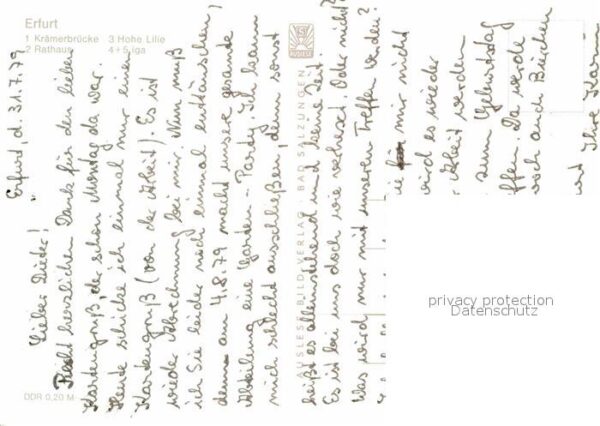 Erfurt
1 Krämerbrücke 3 Hohe Lilie
2 Rathaus 4+5 iga
Erfurt, d. 31.7.79
Lieber Dieter!
Recht herzlichen Dank für den lieben
Kartengruß, der schon Montag da war.
Heute schicke ich einmal nur einen
Kartengruß (von der Arbeit). Es ist
wieder Abrechnung bei mir. Nun muß
ich Sie leider noch einmal enttäuschen,
denn am 4.8.79 macht unsere gesamte
Abteilung eine Garden-Party. Ich kann
mich schlecht ausschließen, denn sonst
heißt es alleinstehend und keine Zeit.
Es ist bei uns doch wie verhext. Oder nicht?
Was wird nur mit unseren Treffen werden?
für mir nicht
wird es wieder
werden
zum Geburtstag
Da werde
noch auch
Ihre Karin
AUSLESE-BILD-VERLAG · BAD SALZUNGEN
DDR 0,20 M
privacy protection
Datenschutz